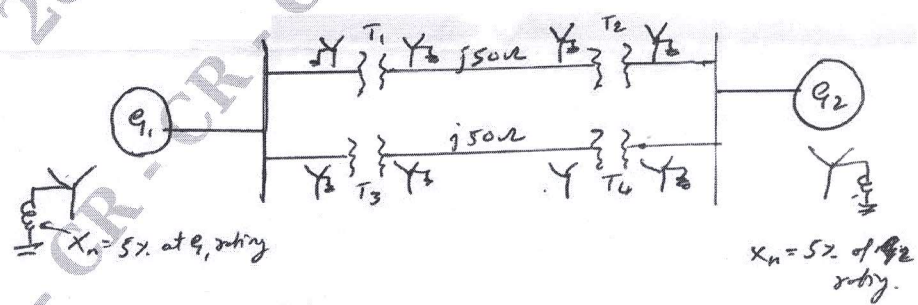 T1
T2
j50Ω
G1
G2
j50Ω
T3
T4
Xn = 5% at G1 rating
Xn = 5% of G2
rating.
CR - CR - C
CR - CR -